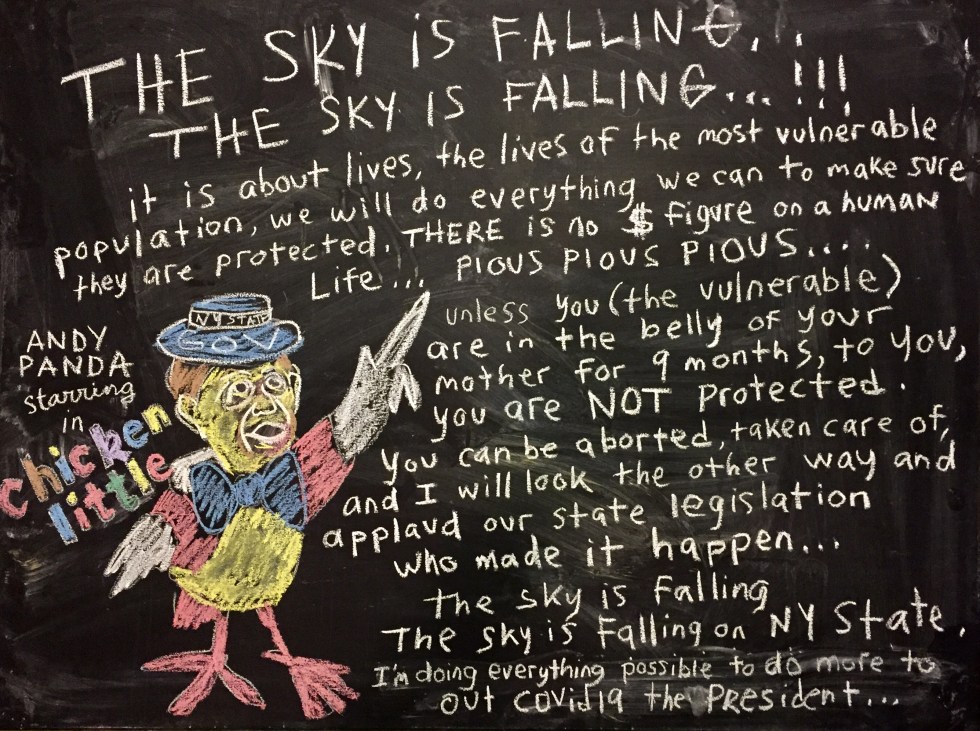 THE SKY iS FALLING..
THE SKY IS FALLING... !!!
it is about lives, the lives of the most vulnerable
population, we will do everything we can to make sure
they are protected. THERE is no $ figure on a human
Life... PIOUS PIOUS PIOUS....
unless you (the vulnerable)
are in the belly of your
mother for 9 months, to you,
you are NOT protected.
you can be aborted, taken care of,
and I will look the other way and
applaud our state legislation
who made it happen...
the sky is falling
The sky is falling on NY State.
I'm doing everything possible to do more to
out covid19 the PResident...
NY STATE
GOV
ANDY
PANDA
starring
in
chicken
little